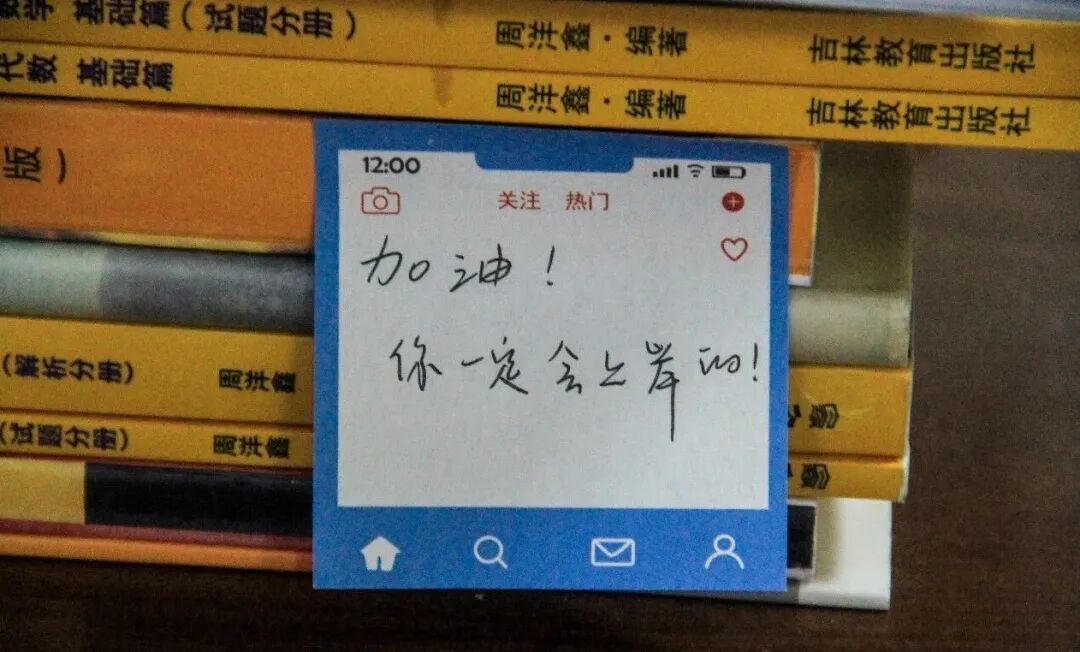 数学 基础篇（试题分册） 周洋鑫·编著 吉林教育出版社
代数 基础篇 周洋鑫·编著 吉林教育出版社
版）
12:00
关注 热门
加油！
你一定会上岸的！
（解析分册） 周洋鑫
（试题分册） 周洋鑫